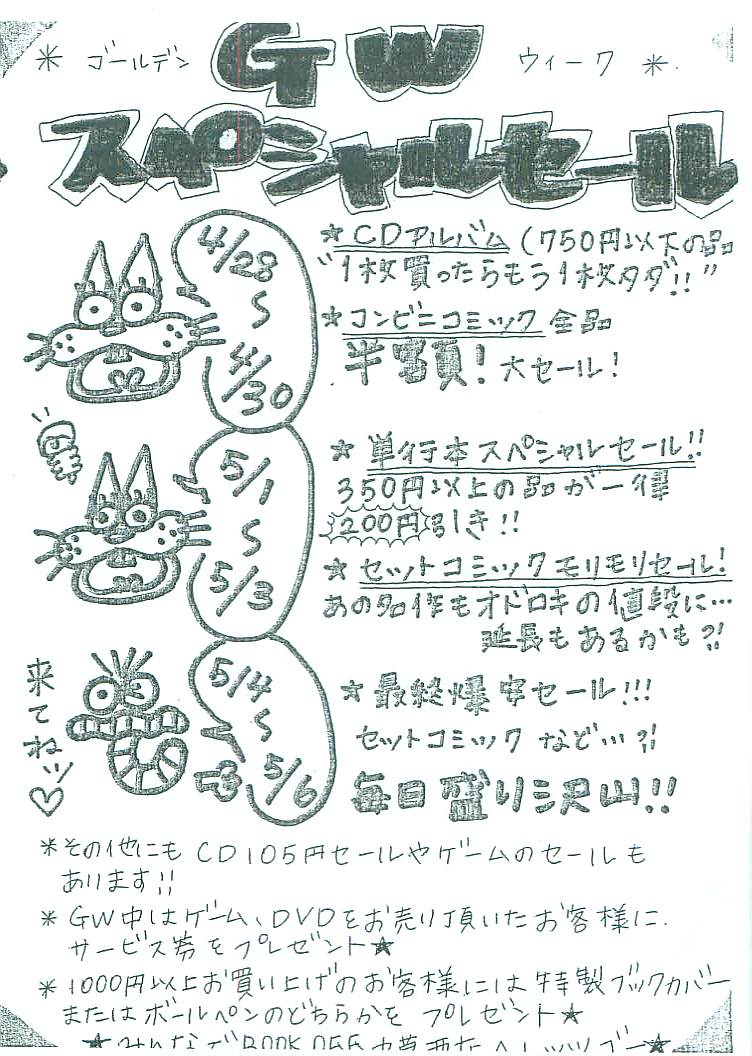 * ゴールデン GW ウィーク *
スペシャルセール
4/28
〜
4/30
★CDアルバム (750円以下の品
"1枚買ったらもう1枚タダ!!"
★コンビニコミック 全品
半額! 大セール!
5/1
〜
5/3
★ 単行本スペシャルセール!!
350円以上の品が一律
200円引き!!
★ セットコミックモリモリセール!
あの名作もオドロキの値段に…
延長もあるかも?!
5/4
〜
5/6
★ 最終爆安セール!!!
セットコミック など…?!
毎日盛り沢山!!
来てねッ♡
*その他にも CD105円セールやゲームのセールも
あります!!
* GW中はゲーム、DVDをお売り頂いたお客様に
サービス券をプレゼント★
* 1000円以上お買い上げのお客様には特製ブックカバー
またはボールペンのどちらかを プレゼント★
★みんなで BOOK OFF